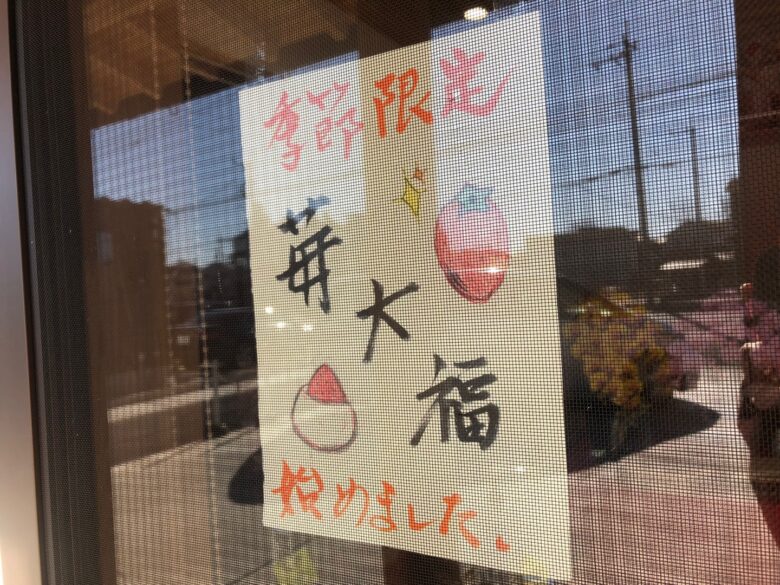 季節限定
苺
大
福
始めました。